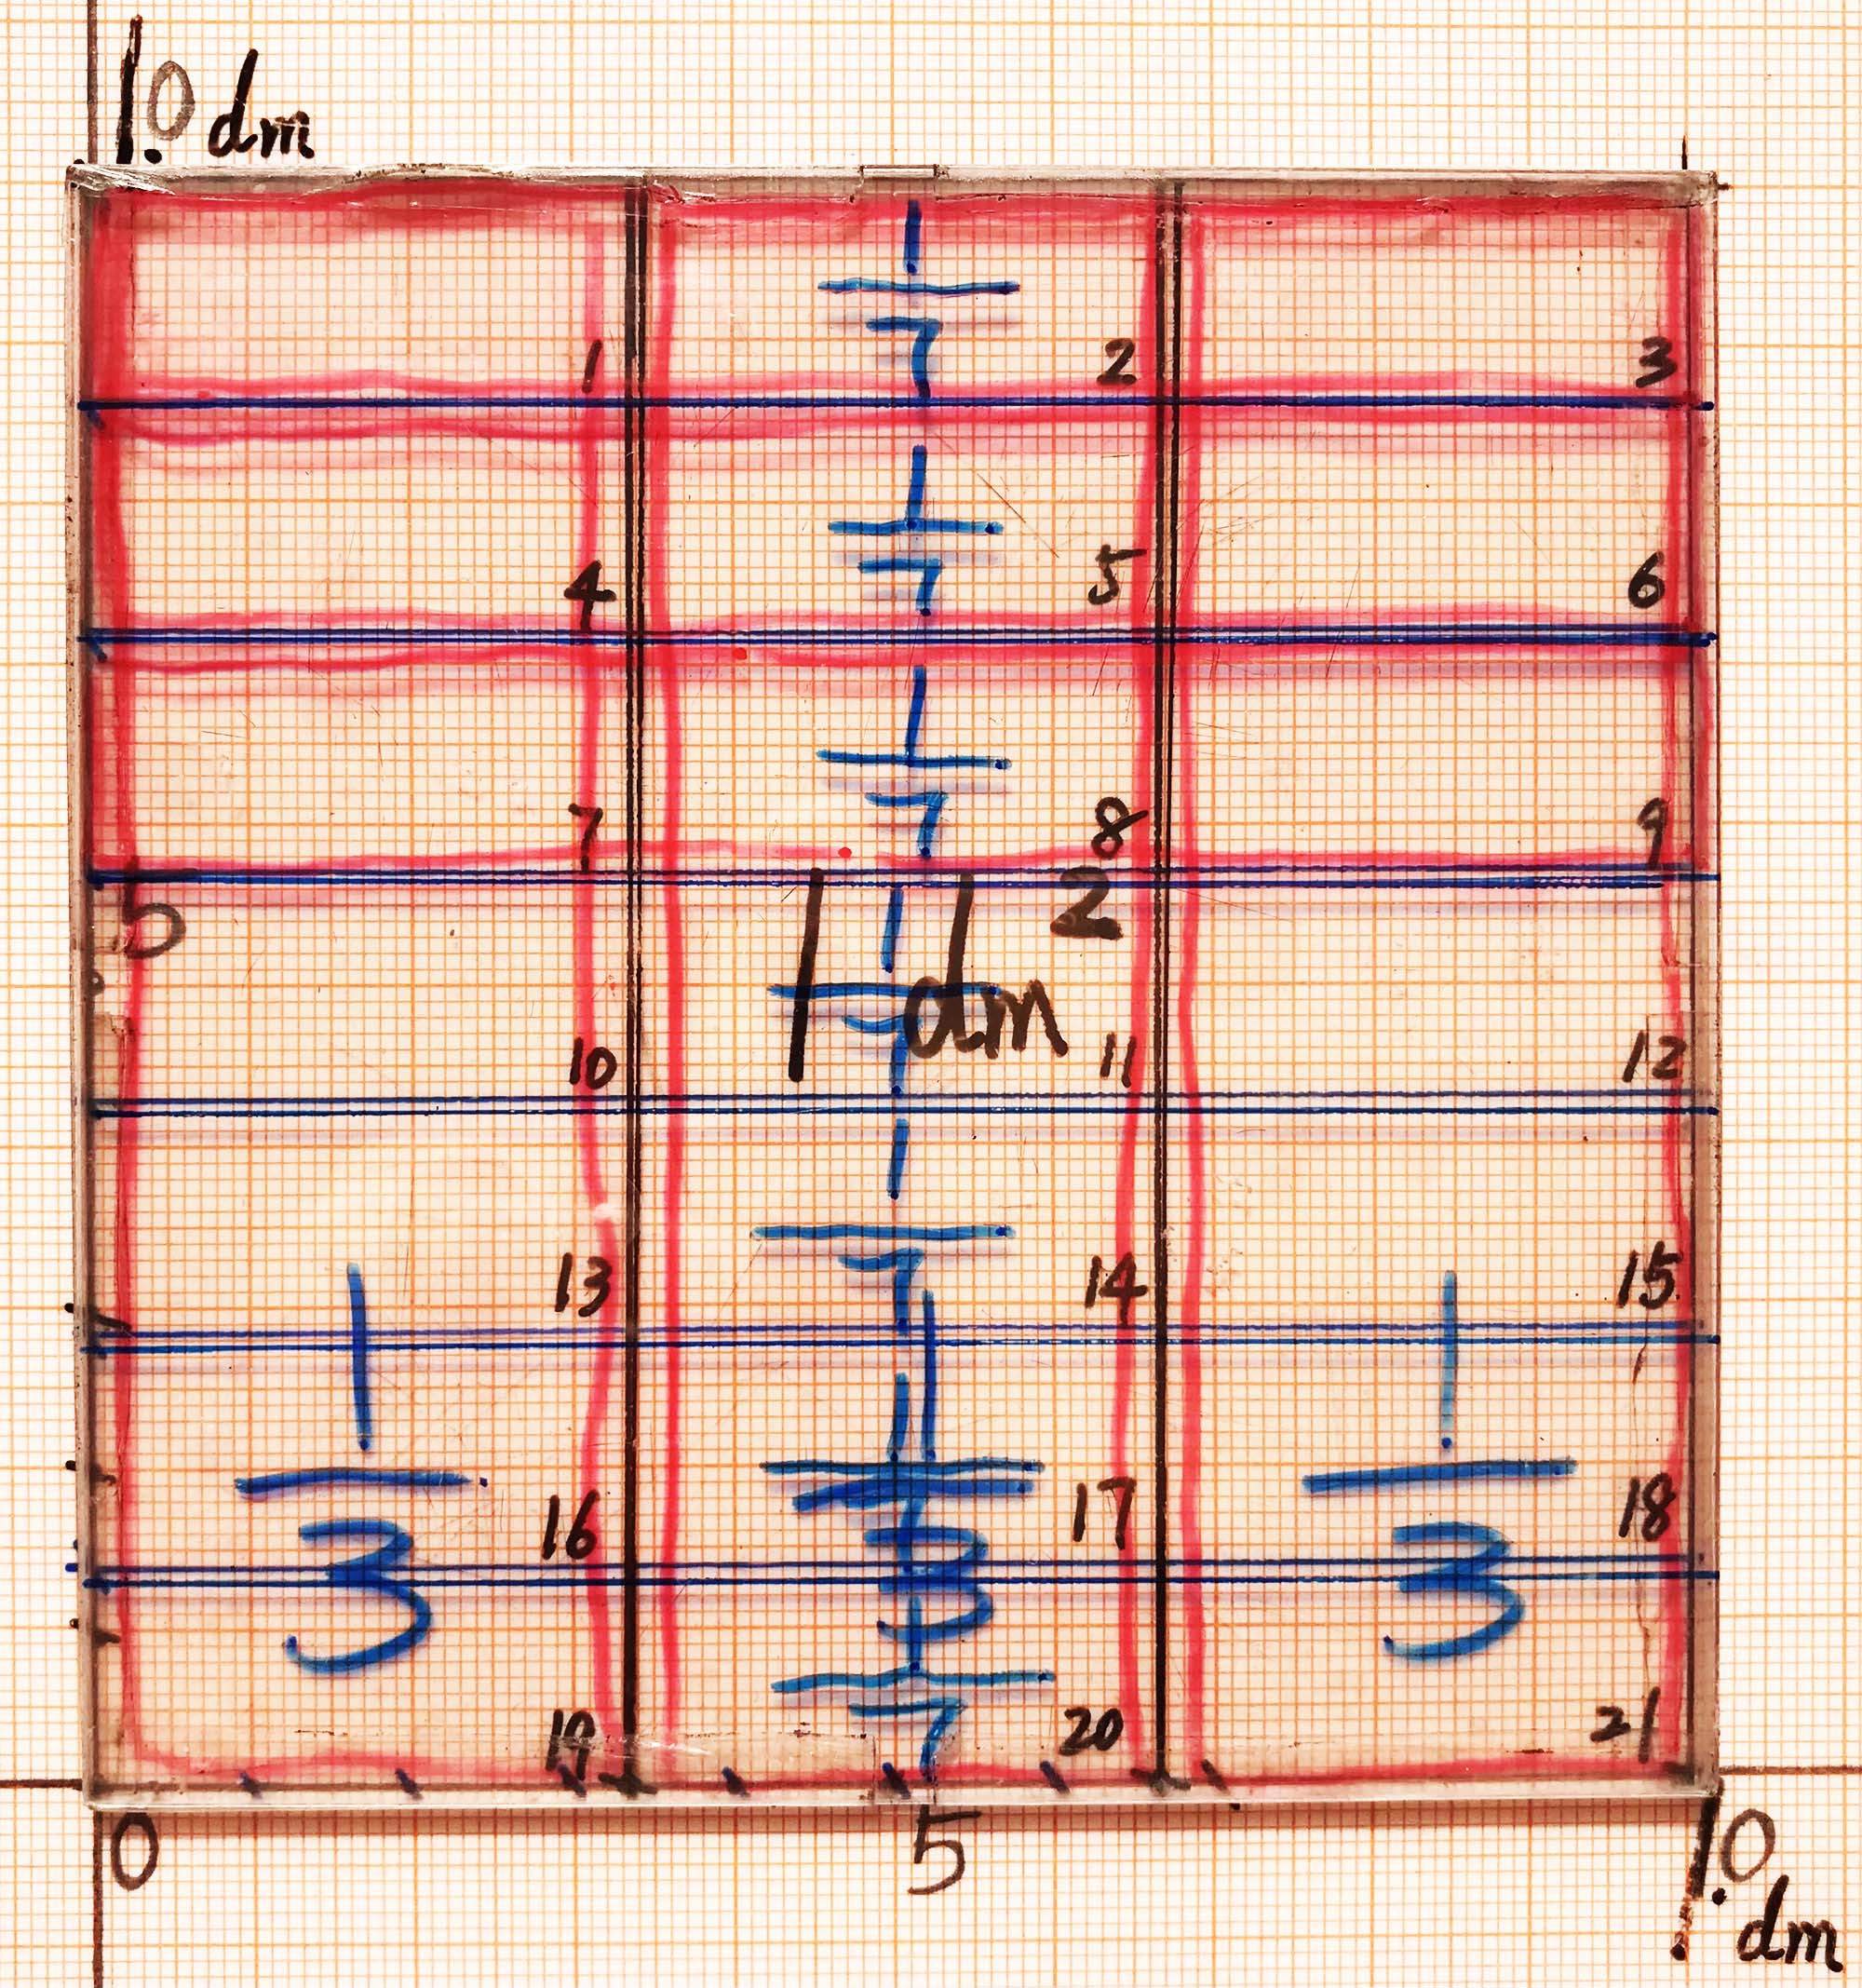 1.0 dm
1
7
1 2 3
1
7
4 5 6
1
7
7 8 9
5
1 dm 2
1
7
10 11 12
1
7
13 14 15
1 1 1
3 3 3
1
7
16 17 18
1
7
19 20 21
0 5 1.0
dm